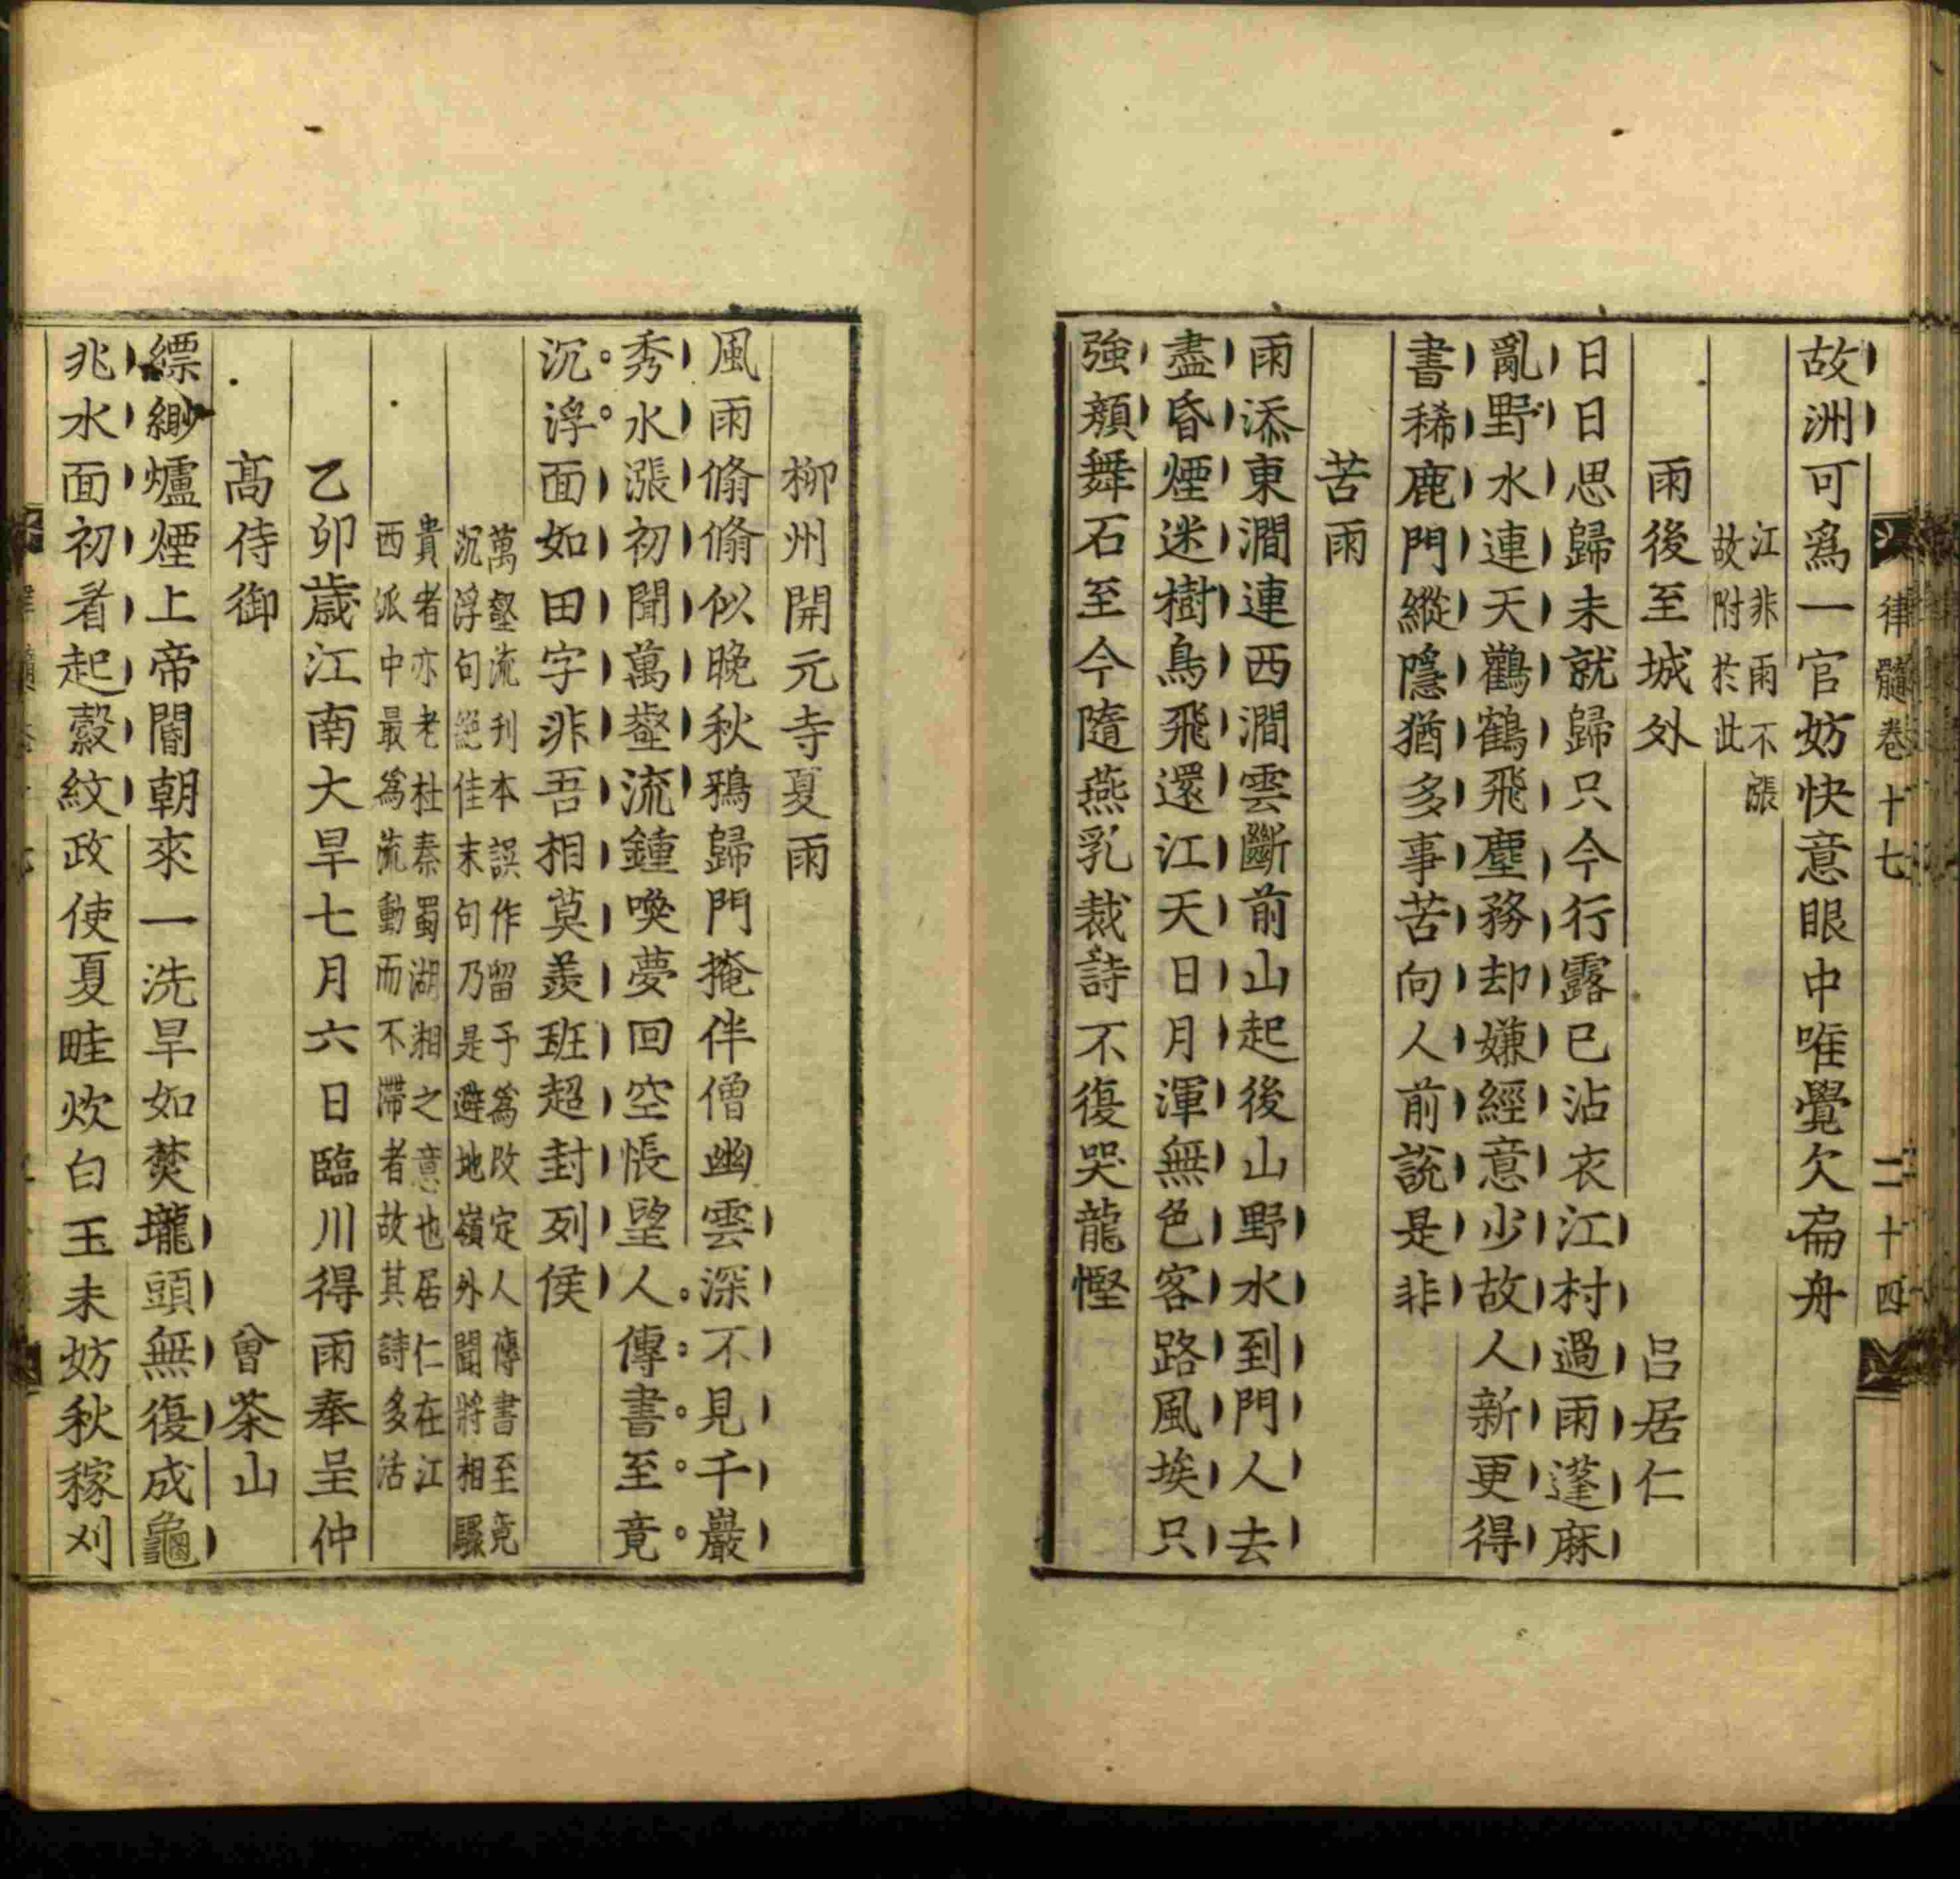 律髓卷十七 二十四
故洲可爲一官妨快意眼中唯覺欠扁舟
江非雨不漲
故附於此
雨後至城外 呂居仁
日日思歸未就歸只今行露已沾衣江村過雨蓬麻
亂野水連天鸛鶴飛塵務却嫌經意少故人新更得
書稀鹿門縱隱猶多事苦向人前說是非
苦雨
雨添東澗連西澗雲斷前山起後山野水到門人去
盡昏煙迷樹鳥飛還江天日月渾無色客路風埃只
強顏舞石至今隨燕乳裁詩不復哭龍慳
柳州開元寺夏雨
風雨翛翛似晚秋鴉歸門掩伴僧幽雲深不見千巖
秀水漲初聞萬壑流鍾喚夢回空悵望人傳書至竟
沉浮面如田字非吾相莫羨班超封列侯
萬壑流刋本誤作留予爲改定人傳書至竟
沉浮句絕佳末句乃是避地嶺外聞將相驟
貴者亦老杜秦蜀湖湘之意也居仁在江
西派中最爲流動而不滯者故其詩多活
乙卯歲江南大旱七月六日臨川得雨奉呈仲
髙侍御 曾茶山
縹緲爐煙上帝閽朝來一洗旱如焚壠頭無復成龜
兆水面初看起縠紋政使夏畦炊白玉未妨秋稼刈